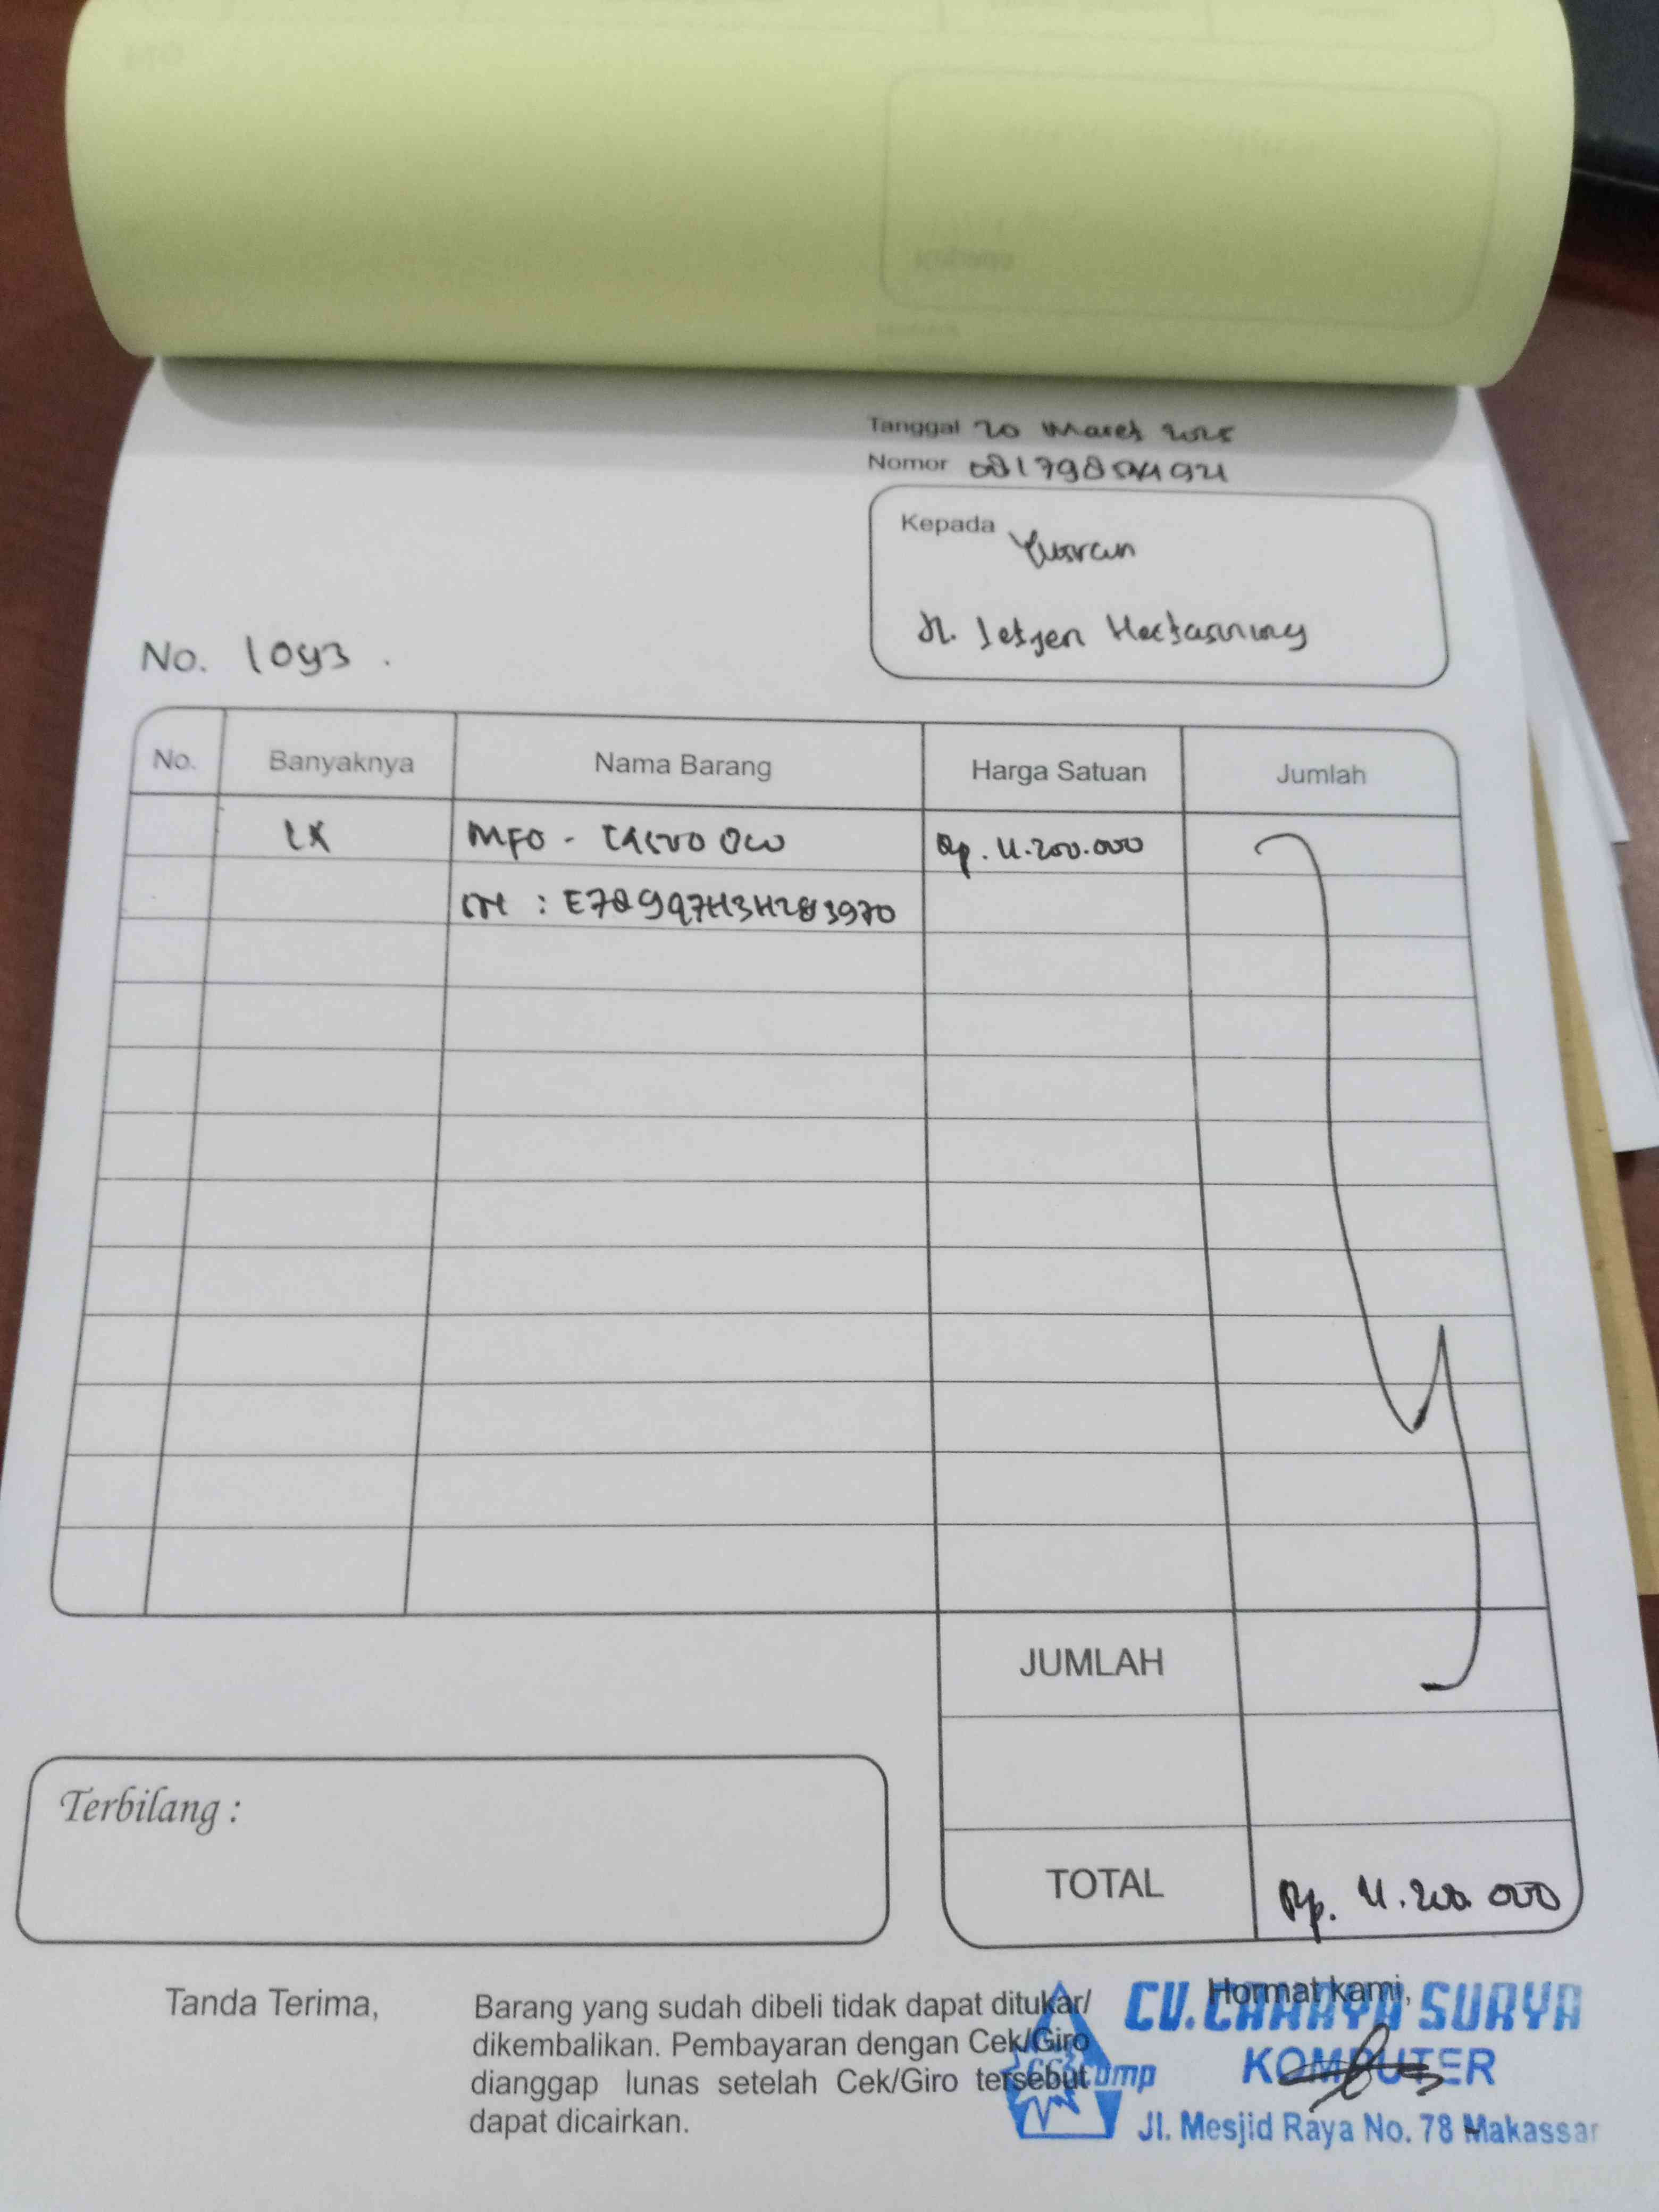 Tanggal 20 Maret 2025
Nomor
Kepada Yusran
Jl. Letjen Hertasning
No. 1093.
No. Banyaknya Nama Barang Harga Satuan Jumlah
1x MFO - T420D DW Rp. 4.200.000
SN : E78997H3H283970
JUMLAH
Terbilang :
TOTAL Rp. 4.200.000
Tanda Terima,
Barang yang sudah dibeli tidak dapat ditukar/
dikembalikan. Pembayaran dengan Cek/Giro
dianggap lunas setelah Cek/Giro tersebut
dapat dicairkan.
Hormat kami,
CV. CAHAYA SURYA
KOMPUTER
Jl. Mesjid Raya No. 78 Makassar